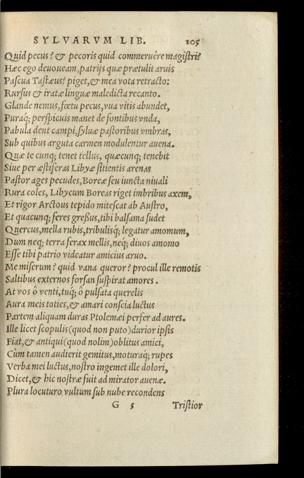 SYLVARVM LIB. 105
Quid pecus? & pecoris quid commeruêre magistri?
Hæc ego deuoueam, patrijs quæ prætulit aruis
Pascua Tastæus? piget, & mea vota retracto:
Rursus & iratæ linguæ maledicta recanto.
Glande nemus, fœtu pecus, vua vitis abundet,
Puraq; perspicuis manet de fontibus vnda,
Pabula dent campi, syluæ pastoribus vmbras,
Sub quibus arguta carmen modulentur auena.
Quæ te cunq; tenet tellus, quæcunq; tenebit
Siue per æstiferas Libyæ sitientis arenas
Pastor ages pecudes, Boreæ seu iuncta niuali
Rura coles, Libycum Boreas riget imbribus axem,
Et rigor Arctous tepido mitescat ab Austro,
Et quacunq; feres gressus, tibi balsama sudet
Quercus, mella rubis, tribulisq; legatur amomum,
Dum neq; terra ferax mellis, neq; diuos amomo
Esse tibi patrio videatur amicius aruo.
Me miserum? quid vana queror? procul ille remotis
Saltibus externos forsan suspirat amores.
At vos ô venti, tuq; ô pulsata querelis
Aura meis toties, & amari conscia luctus
Partem aliquam duras Ptolemæi perfer ad aures.
Ille licet scopulis (quod non puto) durior ipsis
Fiat, & antiqui (quod nolim) oblitus amici,
Cùm tamen audierit gemitus, moturaq; rupes
Verba mei luctus, nostro ingemet ille dolori,
Dicet, & hic nostræ fuit admirator auenæ.
Plura locuturo vultum sub nube recondens
G 5 Tristior